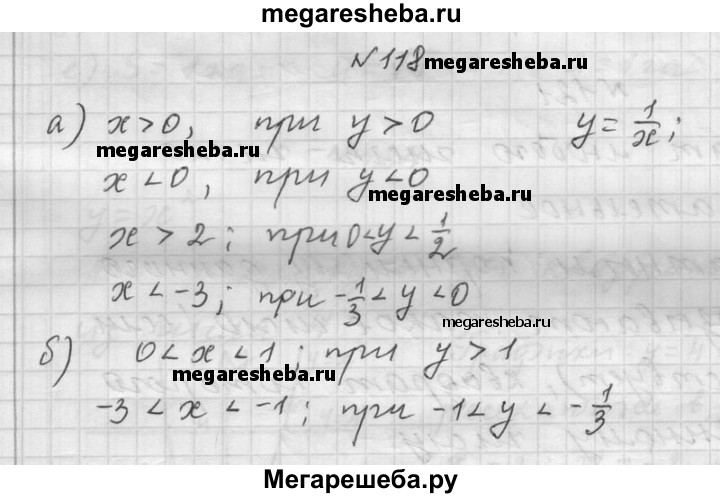 megaresheba.ru
№118 megaresheba.ru
а) x > 0, при y > 0 y = 1/x;
megaresheba.ru
x < 0, при y < 0
x > 2; при 0 < y < 1/2
x < -3; при -1/3 < y < 0
megaresheba.ru
б) 0 < x < 1; при y > 1
megaresheba.ru
-3 < x < -1; при -1 < y < -1/3
Мегарешеба.ру